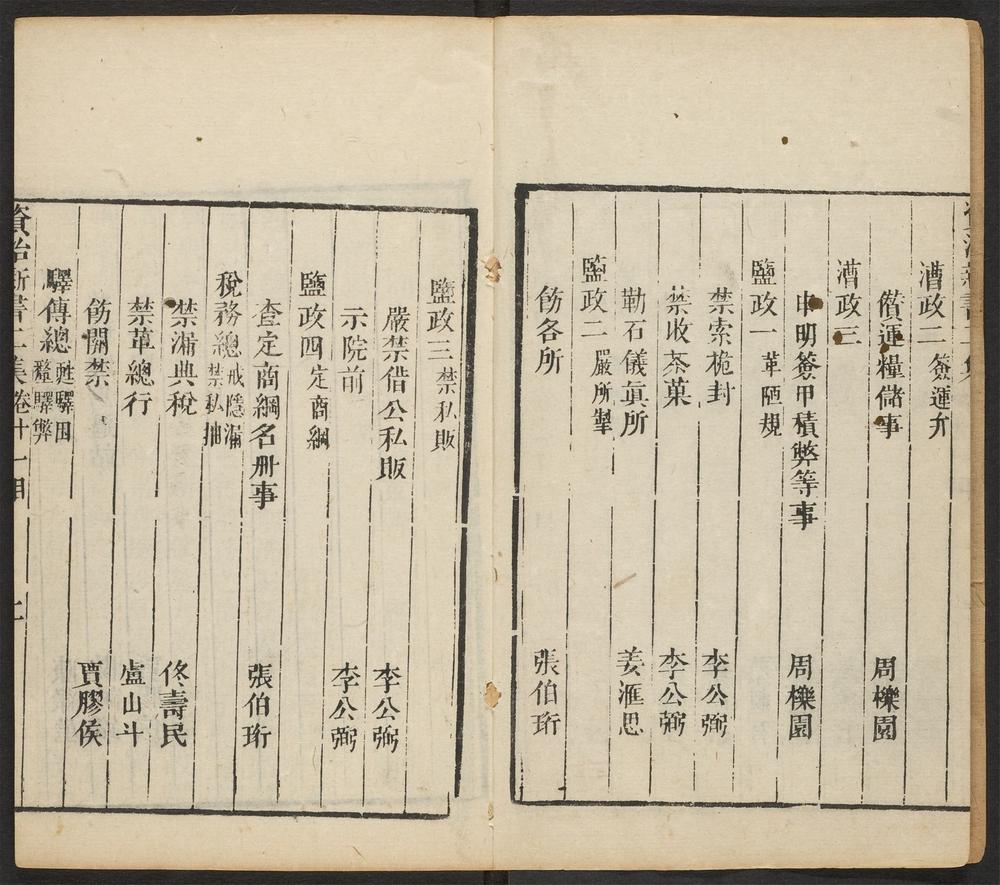 漕政二 僉運弁
儹運糧儲事 周櫟園
漕政三
申明僉甲積弊等事 周櫟園
鹽政一 革陋規
禁索桅封 李公弼
禁收茶菓 李公弼
勒石儀眞所 姜滙思
鹽政二 嚴所掣
飭各所 張伯珩
鹽政三 禁私販
嚴禁借公私販 李公弼
示院前 李公弼
鹽政四 定商綱
查定商綱名册事 張伯珩
稅務總 戒隱漏 禁私抽
禁漏典稅 佟壽民
禁革總行 盧山斗
飭關禁 賈膠侯
驛傳總 甦驛困 釐驛弊
資治新書二集卷十一目 上